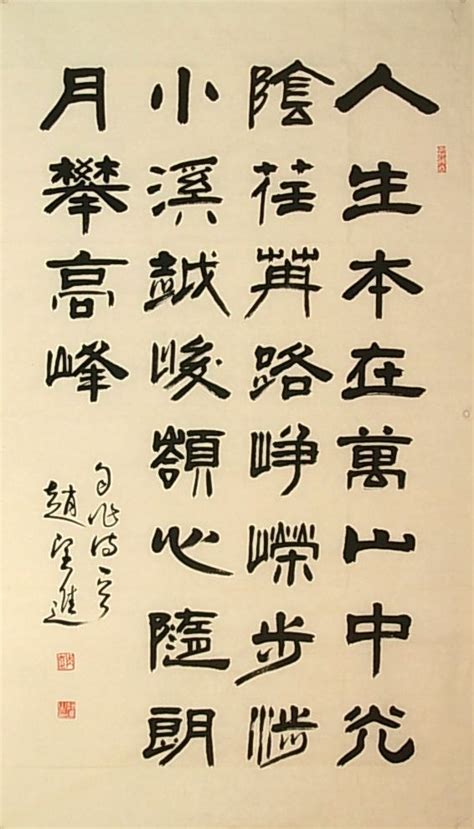 人生本在萬山中光
陰荏苒路崢嶸步涉
小溪越峻嶺心隨朗
月攀高峰
自作诗一首
趙望進